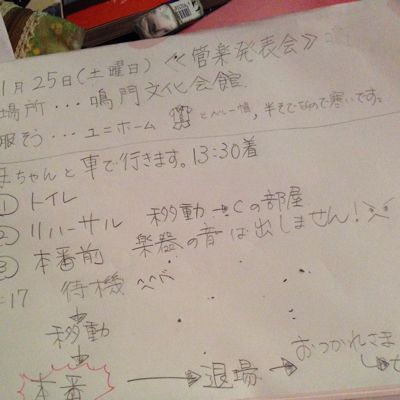 1月25日(土曜日)≪管楽発表会≫
場所・・・鳴門文化会館
服そう・・・ユニホーム とベレー帽,半そでなので寒いです。
ちゃんと車で行きます。13:30着
① トイレ
② リハーサル 移動→Cの部屋
③ 本番前 楽器の音は出しません!
:17 待機
移動
本番 → 退場 → おつかれさま